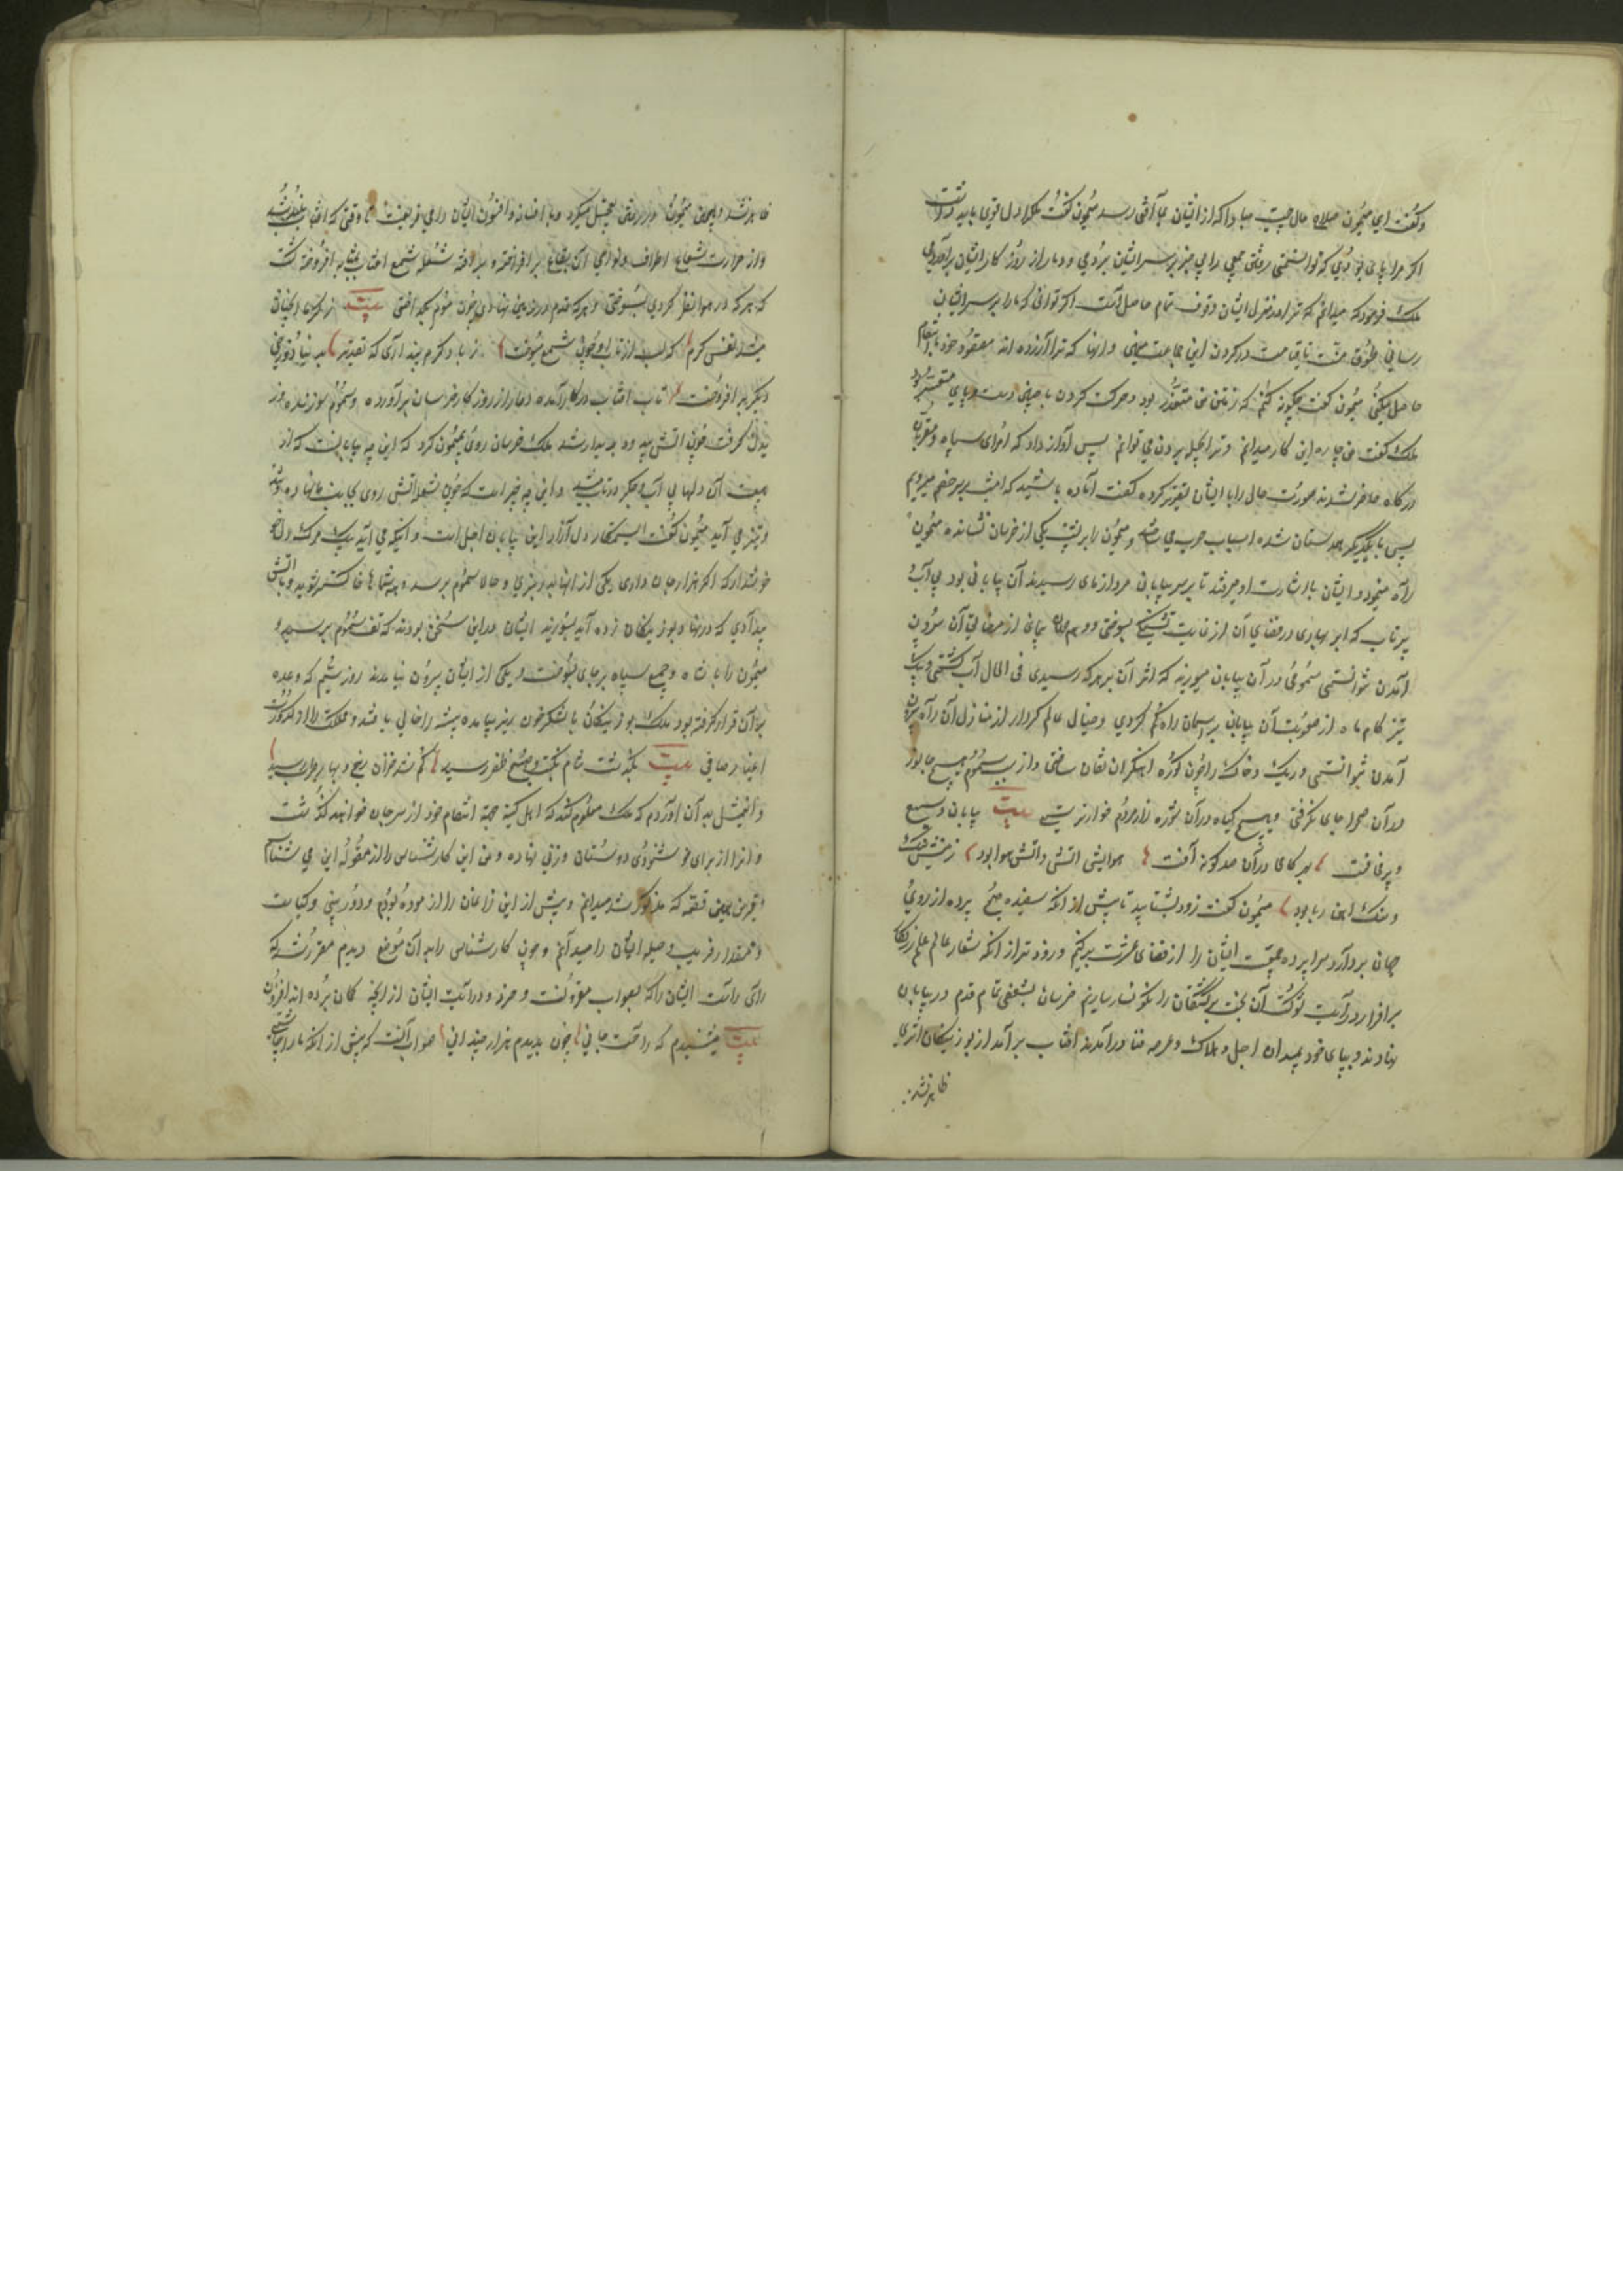 وگفت ای میمون صلاح حال چیست مبادا که از ایشان بما آفتی رسد میمون گفت ملک را دل قوی باید داشت
اگر مرا پای بودی که توانستمی رفتن جمعی را بی خبر بر سر ایشان بردی و دمار از روز کار ایشان برآوردی
ملک فرمود که میدانم که ترا در منزل ایشان وقوف تمام حاصل است اگر توانی که ما را بر سر ایشان
رسانی طوق منت تا قیامت در کردن این جماعت و انها که ترا آزرده اند مقصود خود بانتقام
حاصل میکنی میمون گفت چکونه کنم که رفتن من متعذر بود و حرکت کردن با چنین دست و پای متعسر بود
ملک گفت من چاره این کار میدانم و ترا بحیل بردن می توانم پس آواز داد که امرای سپاه و مقربان
درگاه حاضر شدند صورت حال را با ایشان تقریر کرده گفت آماده باشید که امشب بر سر خصم میرویم
پس با یکدیکر همداستان شده اسباب حرب می ساختند و میمون را بر پشت یکی از خرسان نشانده میمون
راه مینمود و ایشان باشارت او میرفتند تا بر سر بیابان مردازمای رسیدند آن بیابانی بود بی آب و
پر تاب که ابر بهاری در فضای آن از غایت تشنکی بسوختی و وهم جهان پیمای از مضایق آن بیرون
آمدن نتوانستی سمومی در آن بیابان میوزید که اثر آن بر هر که رسیدی فی الحال آب کشتی و پیک
تیز کام ماه از صعوبت آن بیابان بر آسمان راه کم کردی و خیال عالم کرد از منازل آن راه بیرون
آمدن نتوانستی و ریک و خاک را چون کوره آهنکران تفان ساختی و از سبب سموم هیچ جانور
در آن صحرا جای نکرفتی و هیچ کیاه در آن شوره زار مردم خوار نرستی بیت بیابان وسیع
و پر مخافت بهر کامی در آن صد کونه آفت هوایش آتش و آتش هوا بود زمینش ریک
و سنک آهن ربا بود میمون گفت زود بشتابید تا پیش از انکه سفیده صبح پرده از روی
جهان بردارد سراپرده جمعیت ایشان را از فضای عشرت برکنیم و زودتر از انکه شعار عالم علم زرنکار
بر افرازد رایت شوکت آن بخت برکشتکان را نکونسار سازیم خرسان بشعفی تمام قدم در بیابان
نهادند و بپای خود بمیدان اجل و هلاک و عرصه فنا درآمدند آفتاب برآمد از بوزینکان اثری
ظاهر نشد
ظاهر نشد و همچنان میمون در رفتن تعجیل میکرد و با افسانه و افسون ایشان را می فریفت تا وقتی که آفتاب بلند شد
و از حرارت شعاع اطراف و نواحی آن بقاع برافروخته و بر آفته شعله شمع آفتاب بمثابه افروخته کشت
که هر که در هوا نظر کردی بسوختی و هر که قدم در زمین نهادی چون موم بکداختی بیت از کرمای انچنان
میشد نفس کرم که لب از تاب او چون شمع میسوخت ز باد کرم پنداری که تقدیر بدنیا دوزخی
دیکر برافروخت تاب آفتاب در کار آمده دمار از روز کار خرسان برآورده و سموم سوزنده وز
یدن کرفت چون آتش پدید پدیدار شد ملک خرسان روی بمیمون کرد که این چه بیابانیست که از
هیبت آن دلها بی آب و جکر در تاب میشود و این چه چیز است که چون شعله آتش روی بجانب ما نهاده و تند
و تیز می آید میمون گفت ای ستمکار دل آزار این بیابان اجل است و آنکه می آید پیک مرکست دل
خوش دار که اگر هزار جان داری یکی از انها نبری و حالا سموم برسد و همه شما ها خاکستر شوید و بآتش
بیدادی که در نهاد بوزینکان زده آید بسوزید ایشان در این سخن بودند که تف سموم برسید و
میمون را با شاه و جمیع سپاه بر جای بسوخت و یکی از ایشان بیرون نیامدند روز سیم که وعده
بر آن قرار کرفته بود ملک بوزینکان با لشکر خون ریز بیامده بیشه را خالی یافتند و مملکت را از کدورت
اغیار صافی بیت بکذشت شام نکبت و صبح ظفر رسید کم شد خزان رنج و بهار طرب رسید
و این مثل بدان آوردم که ملک معلوم کند که اهل کینه جهة انتقام خود از سر جان خوانند کذشت
و انرا از برای خوشنودی دوستان وزنی نهاده و من این کارشناس را از مقوله این می شناسم
و قرین همین قصه که مذکور شد میدانم و پیش از این زاغان را آزموده بودم و دوربینی و کیاست
و مقدار فریب و حیله ایشان را میدانم و چون کارشناس را بدان موضع دیدم مقرر شد که
رای رأیت ایشان را که بصواب مقرونست و خرد و درایت ایشان از آنچه کمان برده اند افزون
بیت میشنیدم که راحت جانی چون بدیدم هزار چندانی صواب آنست که پیش از آنکه ما را شامی